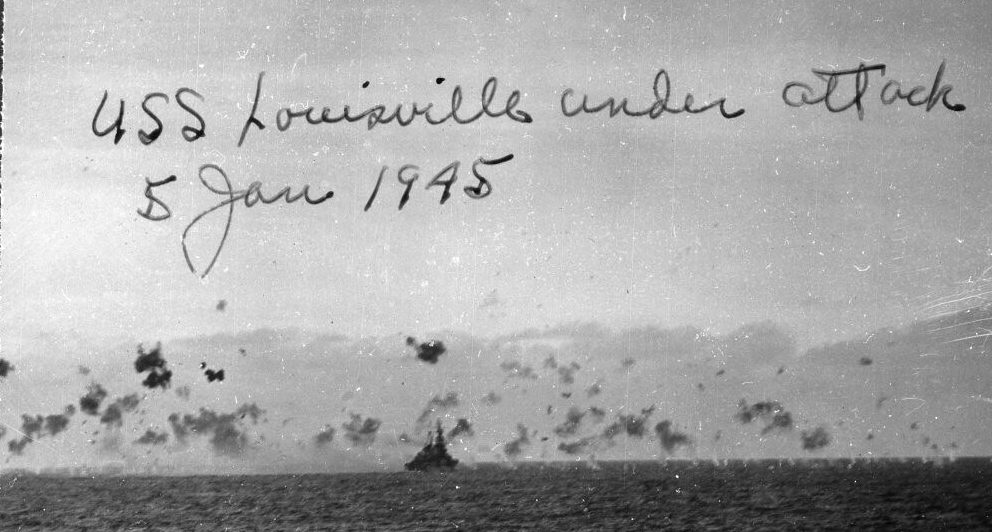 USS Louisville under attack
5 Jan 1945